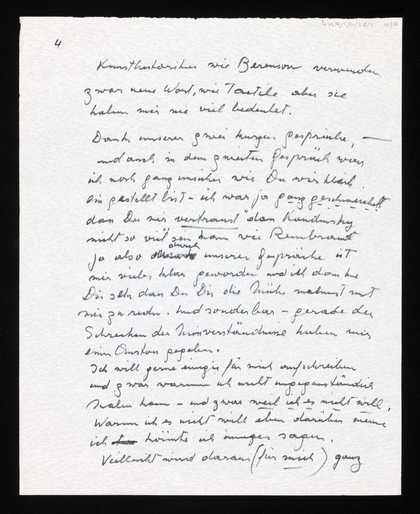 4
Kunsthistoriker wie Berenson verwenden
zwar neue Wort, wie Tactile aber sie
haben mir nie viel bedeutet.
Dank unserer zwei kurzen Gespräche, —
und auch in dem zweiten Gespräch war
ich noch ganz unsicher wie Du wirklich
eingestellt bist – ich war ja ganz
dass Du mir vertraust dass Kandinsky
nicht so viel sein kann wie Rembrandt
ja also durch unserer Gespräche ist
mir vieles klar geworden und ich danke
Dir sehr dass Du Dir die Mühe nahmst mit
mir zu reden. Und sonderbar – gerade der
Schrecken der Missverständnisse haben mir
einen Anstoss gegeben.
Ich will gerne einiges für mich aufschreiben
und zwar warum ich nicht ungegenständlich
malen kann – und zwar weil ich es nicht will,
Warum ich es nicht will eben darüber meine
ich könnte ich einiges sagen.
Vielleicht wird daraus (für mich) ganz